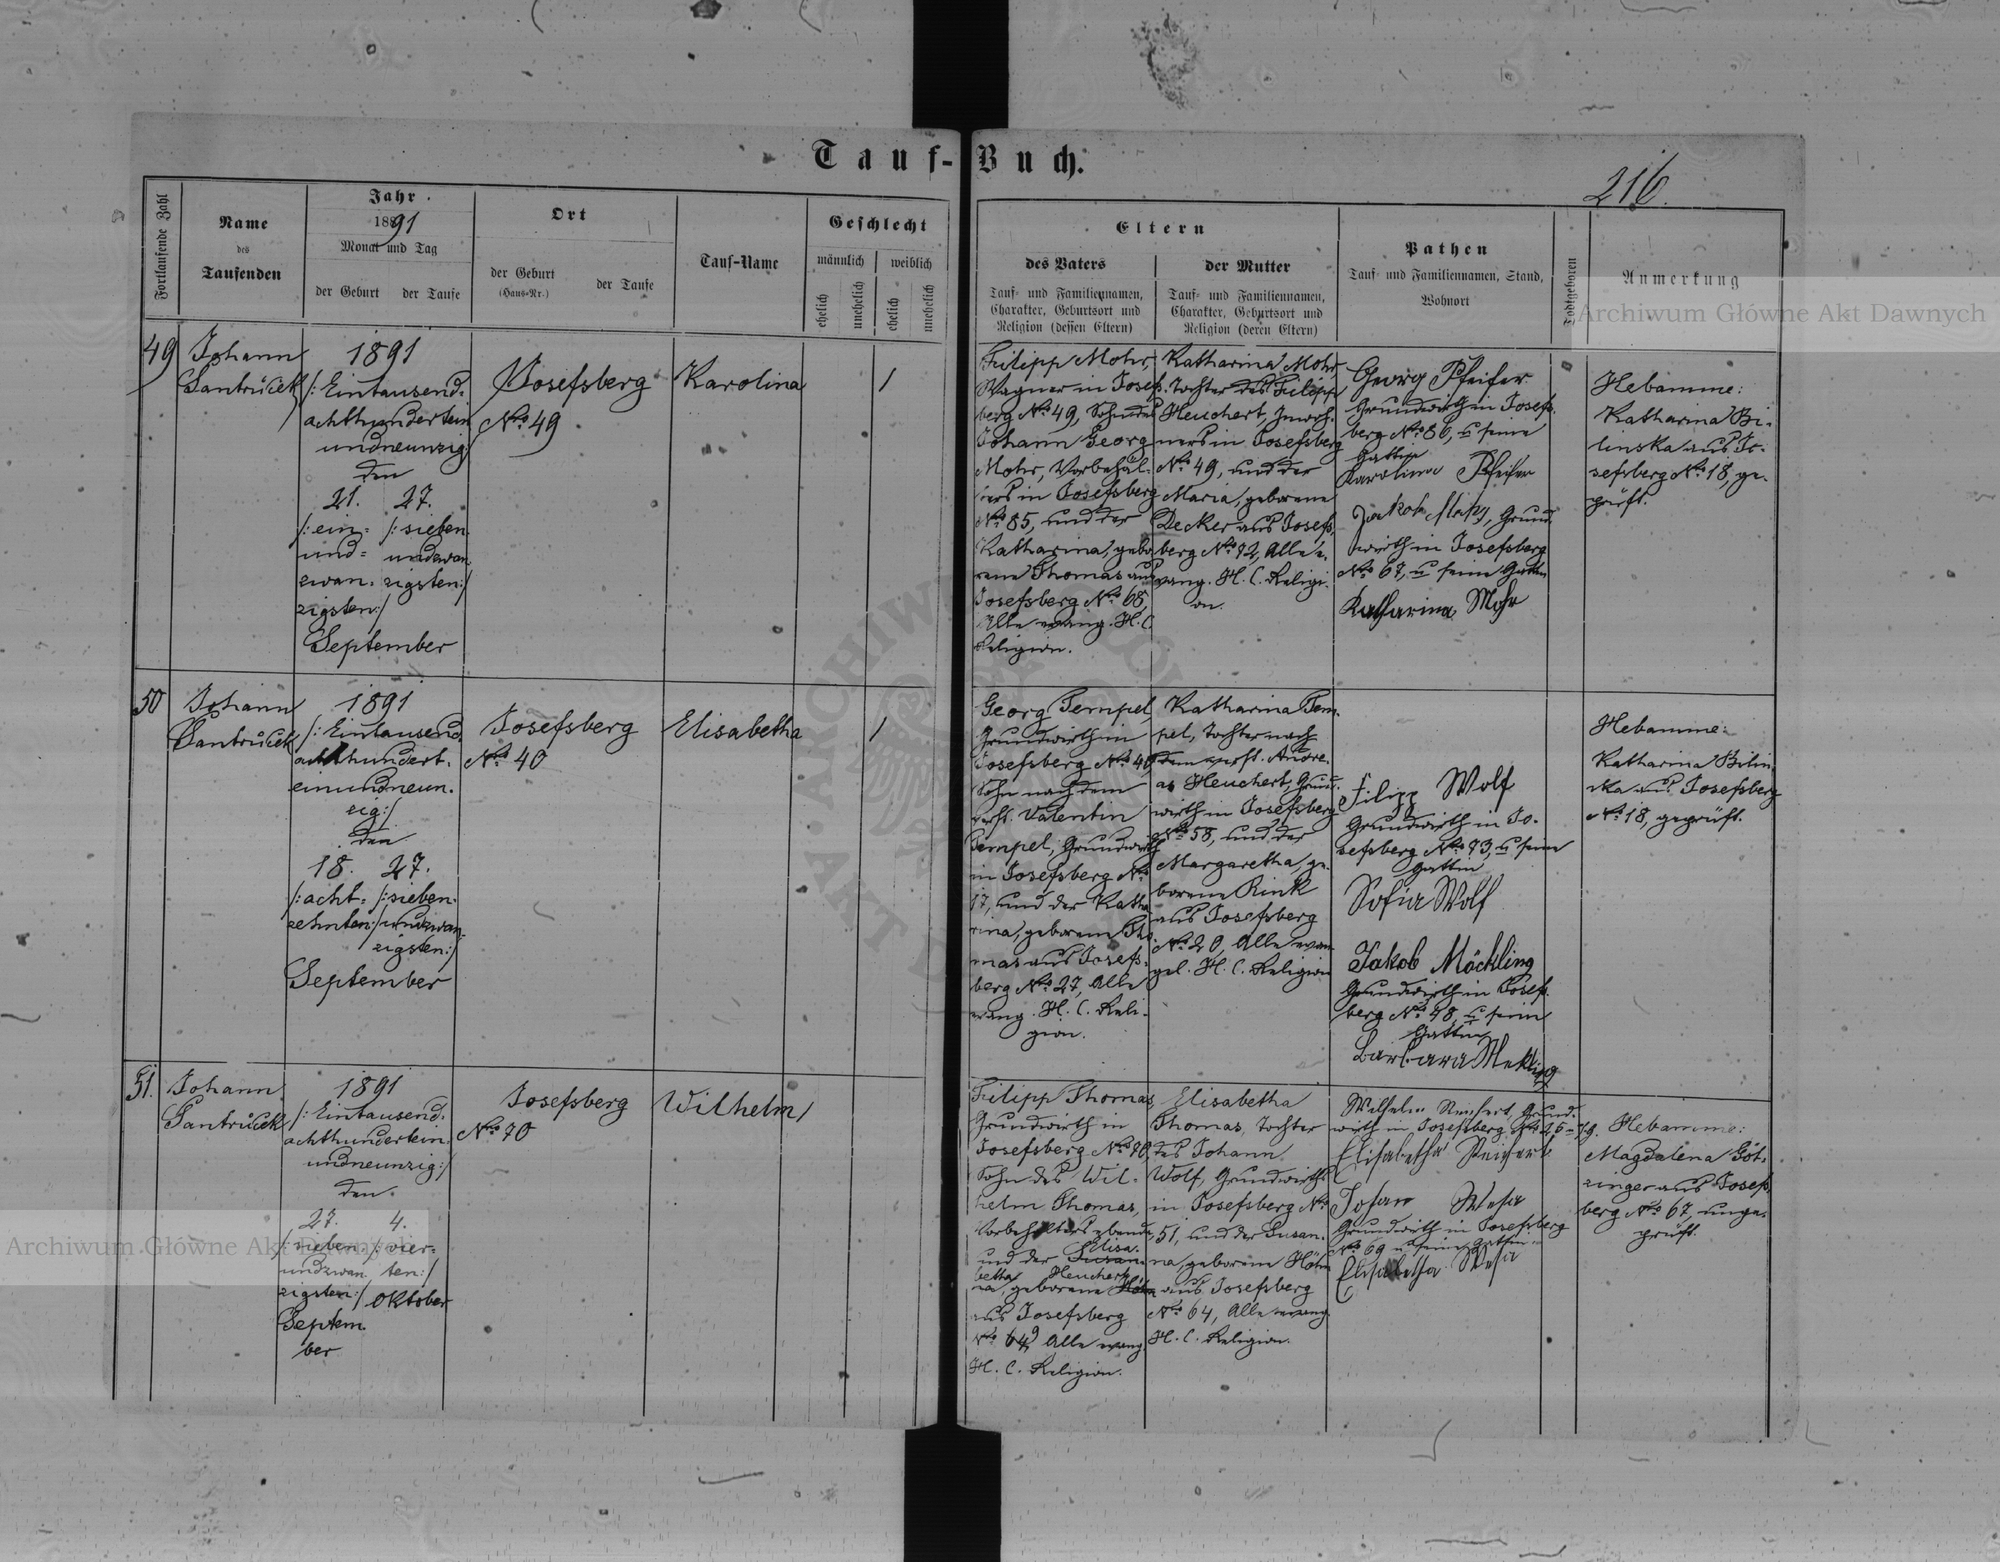 Tauf-Buch.
216.
Fortlaufende Zahl
Name
des
Taufenden
Jahr
1891
Monat und Tag
der Geburt
der Taufe
Ort
der Geburt
(Haus-Nr.)
der Taufe
Tauf-Name
Geschlecht
männlich
weiblich
ehelich
unehelich
ehelich
unehelich
Eltern
des Vaters
Tauf- und Familiennamen,
Charakter, Geburtsort und
Religion (dessen Eltern)
der Mutter
Tauf- und Familiennamen,
Charakter, Geburtsort und
Religion (deren Eltern)
Pathen
Tauf- und Familiennamen, Stand,
Wohnort
Todtgeboren
Anmerkung
49
Johann
Santrůček
1891
/: Eintausend-
achthundertein
undneunzig:/
den
21. 27.
/: ein- /: sieben
und- undzwan
zwan- zigsten:/
zigsten:/
September
Josefsberg
No. 49
Karolina
1
Filipp Mohr,
Wagner in Josefs-
berg No. 49, Sohn des
Johann Georg
Mohr, Vorbehäl-
ters in Josefsberg
No. 85, und der
Katharina, gebo-
rene Thomas aus
Josefsberg No. 68,
Alle evang. H. C.
Religion.
Katharina Mohr
Tochter des Filipp
Heuchert, Inwoh-
ners in Josefsberg
No. 49, und der
Maria, geborene
Decker aus Josefs-
berg No. 72, Alle e-
vang. H. C. Religi-
on.
Georg Pfeifer
Grundwirth in Josefs-
berg No. 86, u seine
Gattin
Karolina Pfeifer
Jakob Mohr, Grund-
wirth in Josefsberg
No. 67, u seine Gattin
Katharina Mohr
Hebamme:
Katharina Bi-
linska aus Jo-
sefsberg No. 18, ge-
prüft.
50
Johann
Santrůček
1891
/: Eintausend-
achthundert-
einundneun-
zig:/
den
18. 27.
/: acht- /: sieben-
zehnten:/ undzwan-
zigsten:/
September
Josefsberg
No. 40
Elisabetha
1
Georg Tempel,
Grundwirth in
Josefsberg No. 40,
Sohn nach dem
verst. Valentin
Tempel, Grundwirth
in Josefsberg No.
17, und der Katha-
rina, geborene Tho-
mas aus Josefs-
berg No. 27, Alle
evang. H. C. Reli-
gion.
Katharina Tem-
pel, Tochter nach
dem verst. Andre-
as Heuchert, Grund-
wirth in Josefsberg
No. 58, und der
Margaretha, ge-
borene Rink
aus Josefsberg
No. 20, Alle evan
gel. H. C. Religion
Filipp Wolf
Grundwirth in Jo-
sefsberg No. 73, u seine
Gattin
Sofia Wolf
Jakob Möckling
Grundwirth in Josefs-
berg No. 48, u seine
Gattin
Barbara Mekling
Hebamme:
Katharina Bilin-
ska aus Josefsberg
No. 18, geprüft.
51.
Johann
Santrůček
1891
/: Eintausend-
achthundertein
undneunzig:/
den
27. 4.
/: sieben /: vier-
undzwan ten:/
zigsten:/ Oktober
Septem
ber
Josefsberg
No. 70
Wilhelm
1
Filipp Thomas,
Grundwirth in
Josefsberg No. 70,
Sohn des Wil-
helm Thomas,
Vorbehälters ebenda,
und der Susan- Elisa-
na, betha geborene Höhn Heuchert
aus Josefsberg
No. 64, Alle evang.
H. C. Religion.
Elisabetha
Thomas, Tochter
des Johann
Wolf, Grundwirths
in Josefsberg No.
51, und der Susan-
na, geborene Höhn
aus Josefsberg
No. 64, Alle evang.
H. C. Religion.
Grund-
wirth in Josefsberg
Elisabetha
Grundwirth in Josefsberg
No. 69 u seine Gattin
Elisabetha
Hebamme:
Magdalena Göt-
zinger aus Josefs-
berg No. 67, unge-
prüft.
Archiwum Główne Akt Dawnych
Archiwum Główne Akt Dawnych